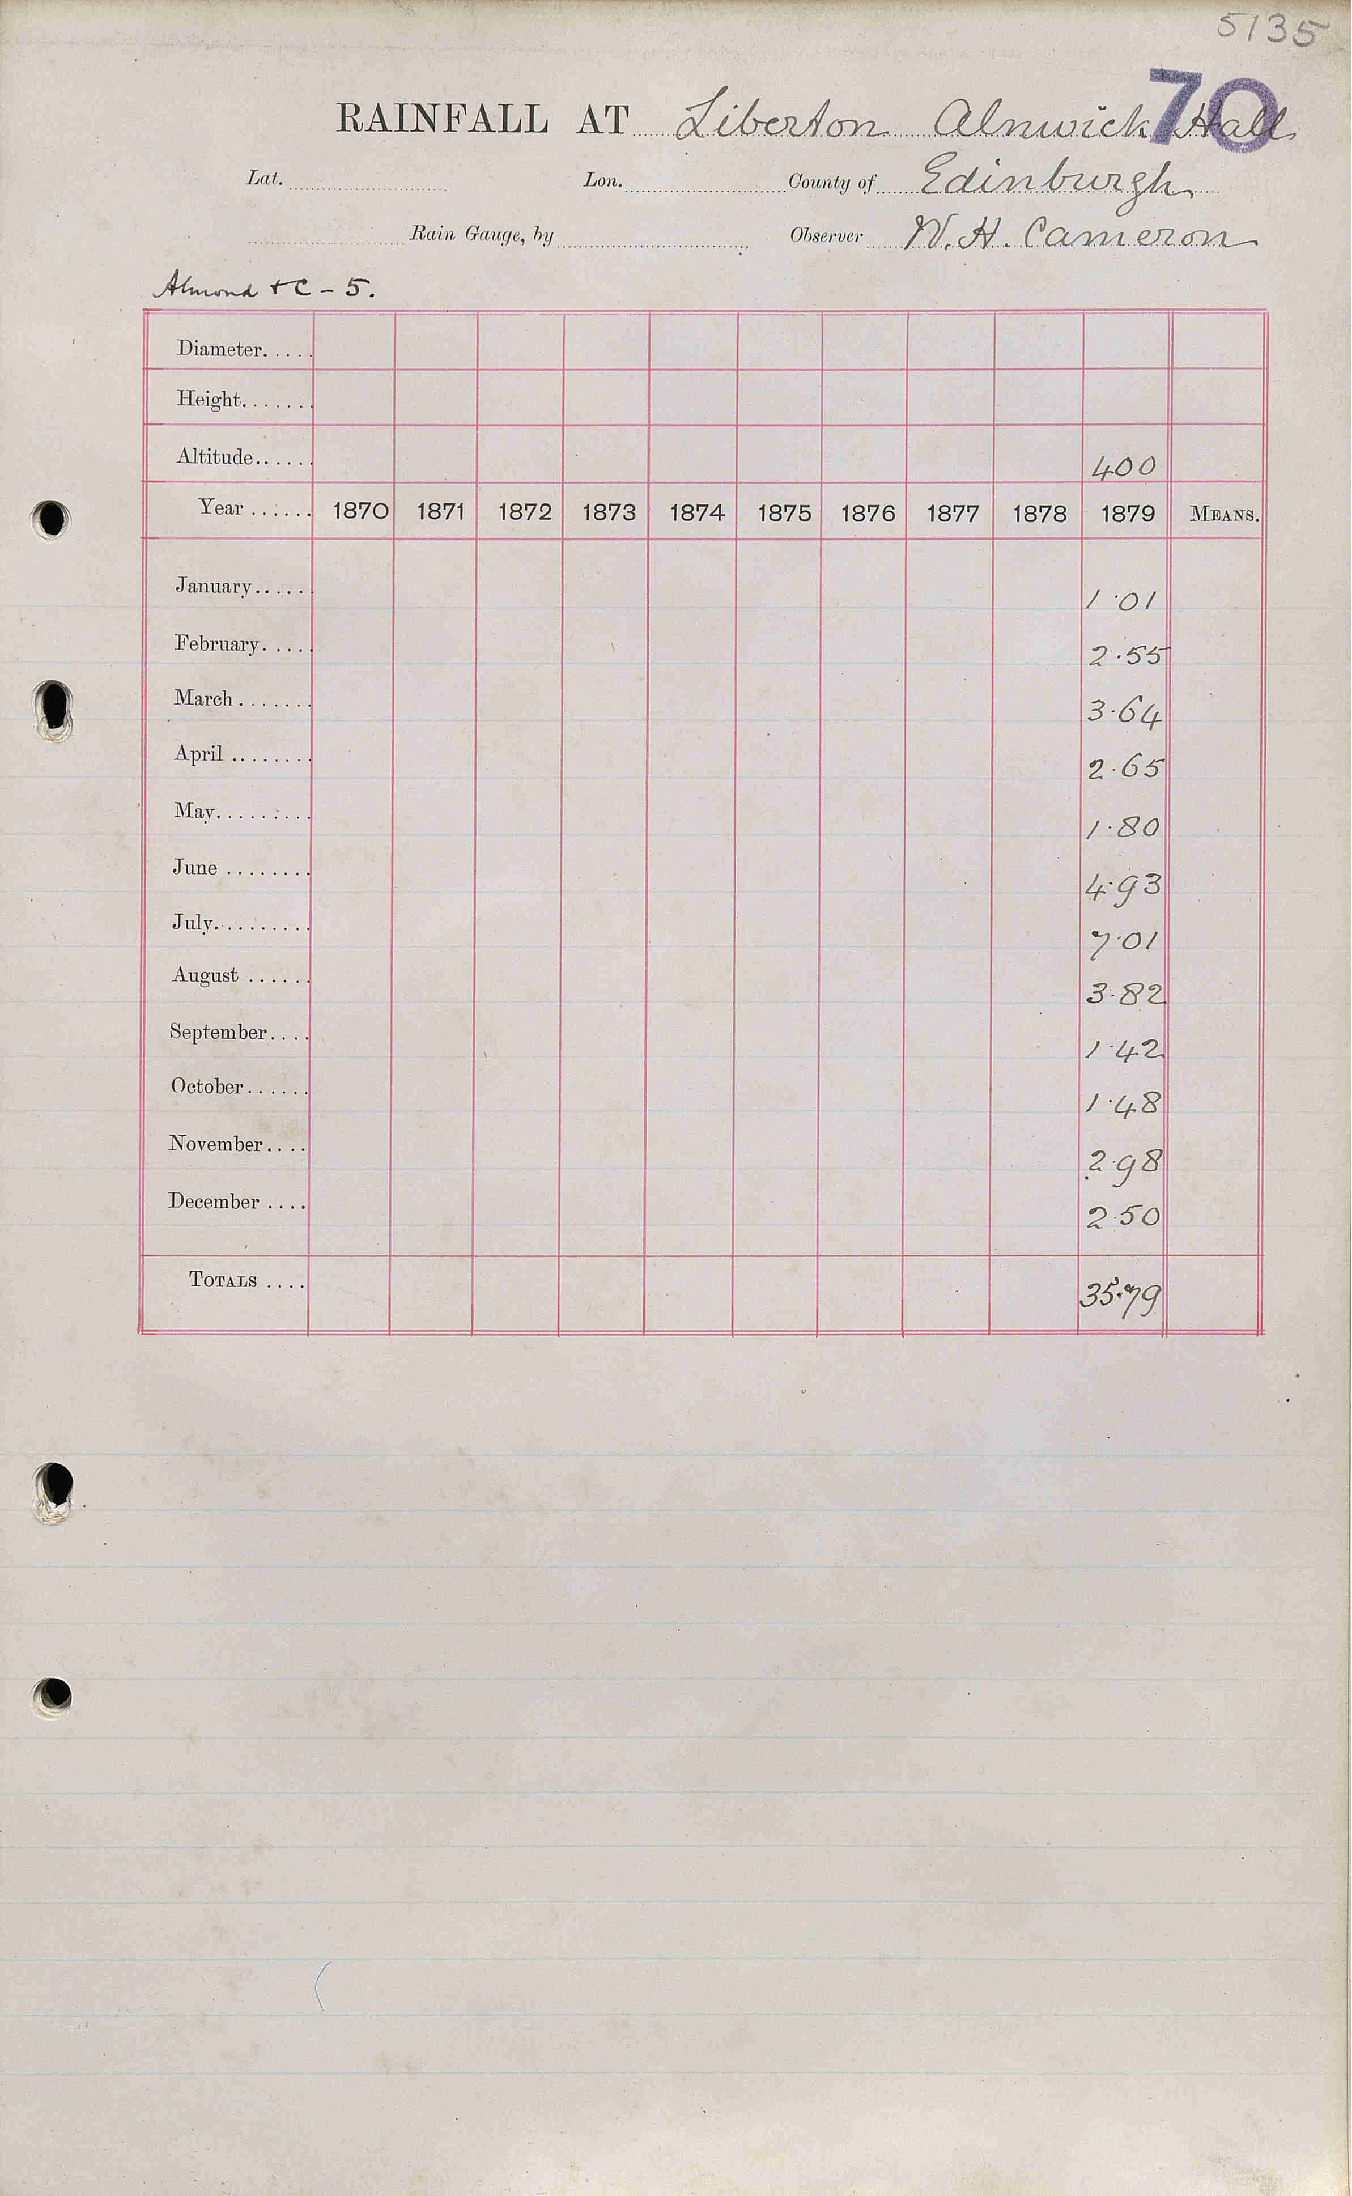 5135
70
RAINFALL AT Liberton Alnwick Hall
Lat. Lon. County of Edinburgh
Rain Gauge, by Observer W. H. Cameron
Almond & C – 5.
Diameter.....
Height.......
Altitude...... 400
Year...... 1870 1871 1872 1873 1874 1875 1876 1877 1878 1879 MEANS.
January...... 1.01
February..... 2.55
March....... 3.64
April........ 2.65
May......... 1.80
June........ 4.93
July......... 7.01
August...... 3.82
September.... 1.42
October...... 1.48
November.... 2.98
December.... 2.50
TOTALS.... 35.79